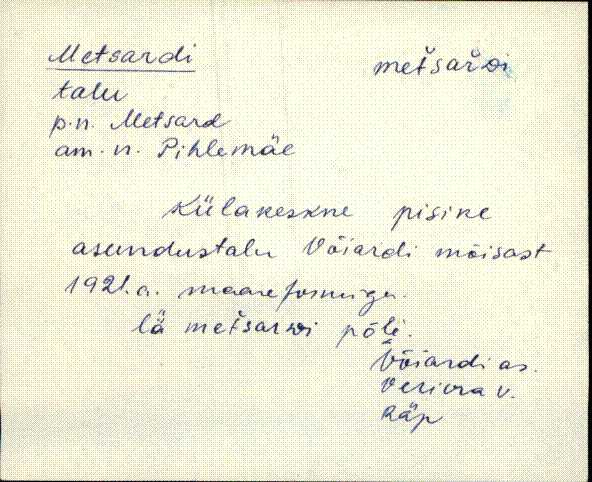 Metsardi
metšarDi
talu
p.n. Metsard
am. n. Pihlemäe
Külakeskne pisike
asundustalu Võiardi mõisast
1921.a. maareformiga.
lä metšarDi põlè.
Võiardi as.
Veriora v.
Räp